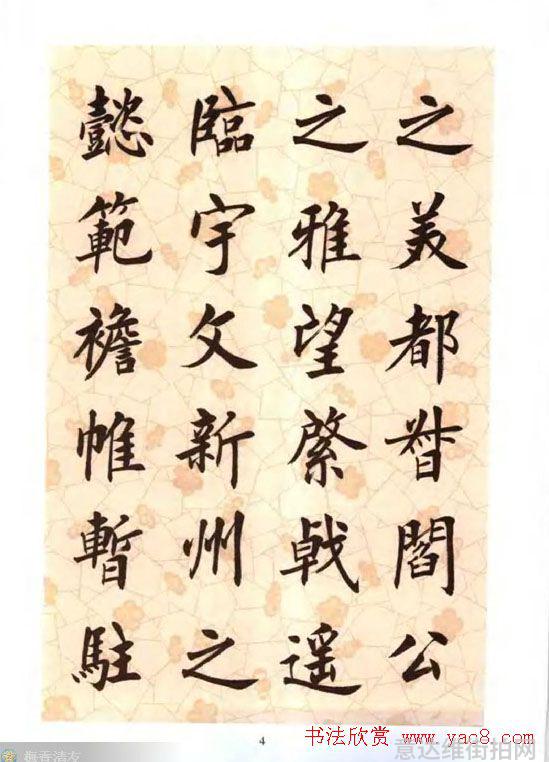 之美都督閻公
之雅望棨戟遥
臨宇文新州之
懿範襜帷暫駐
4
书法欣赏 www.yac8.com
意达维街拍网
梅香清友